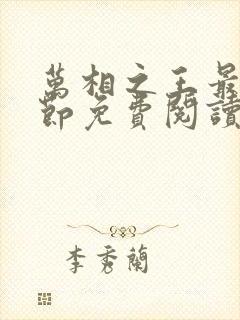 萬相之王最
節免費閱讀
李秀蘭